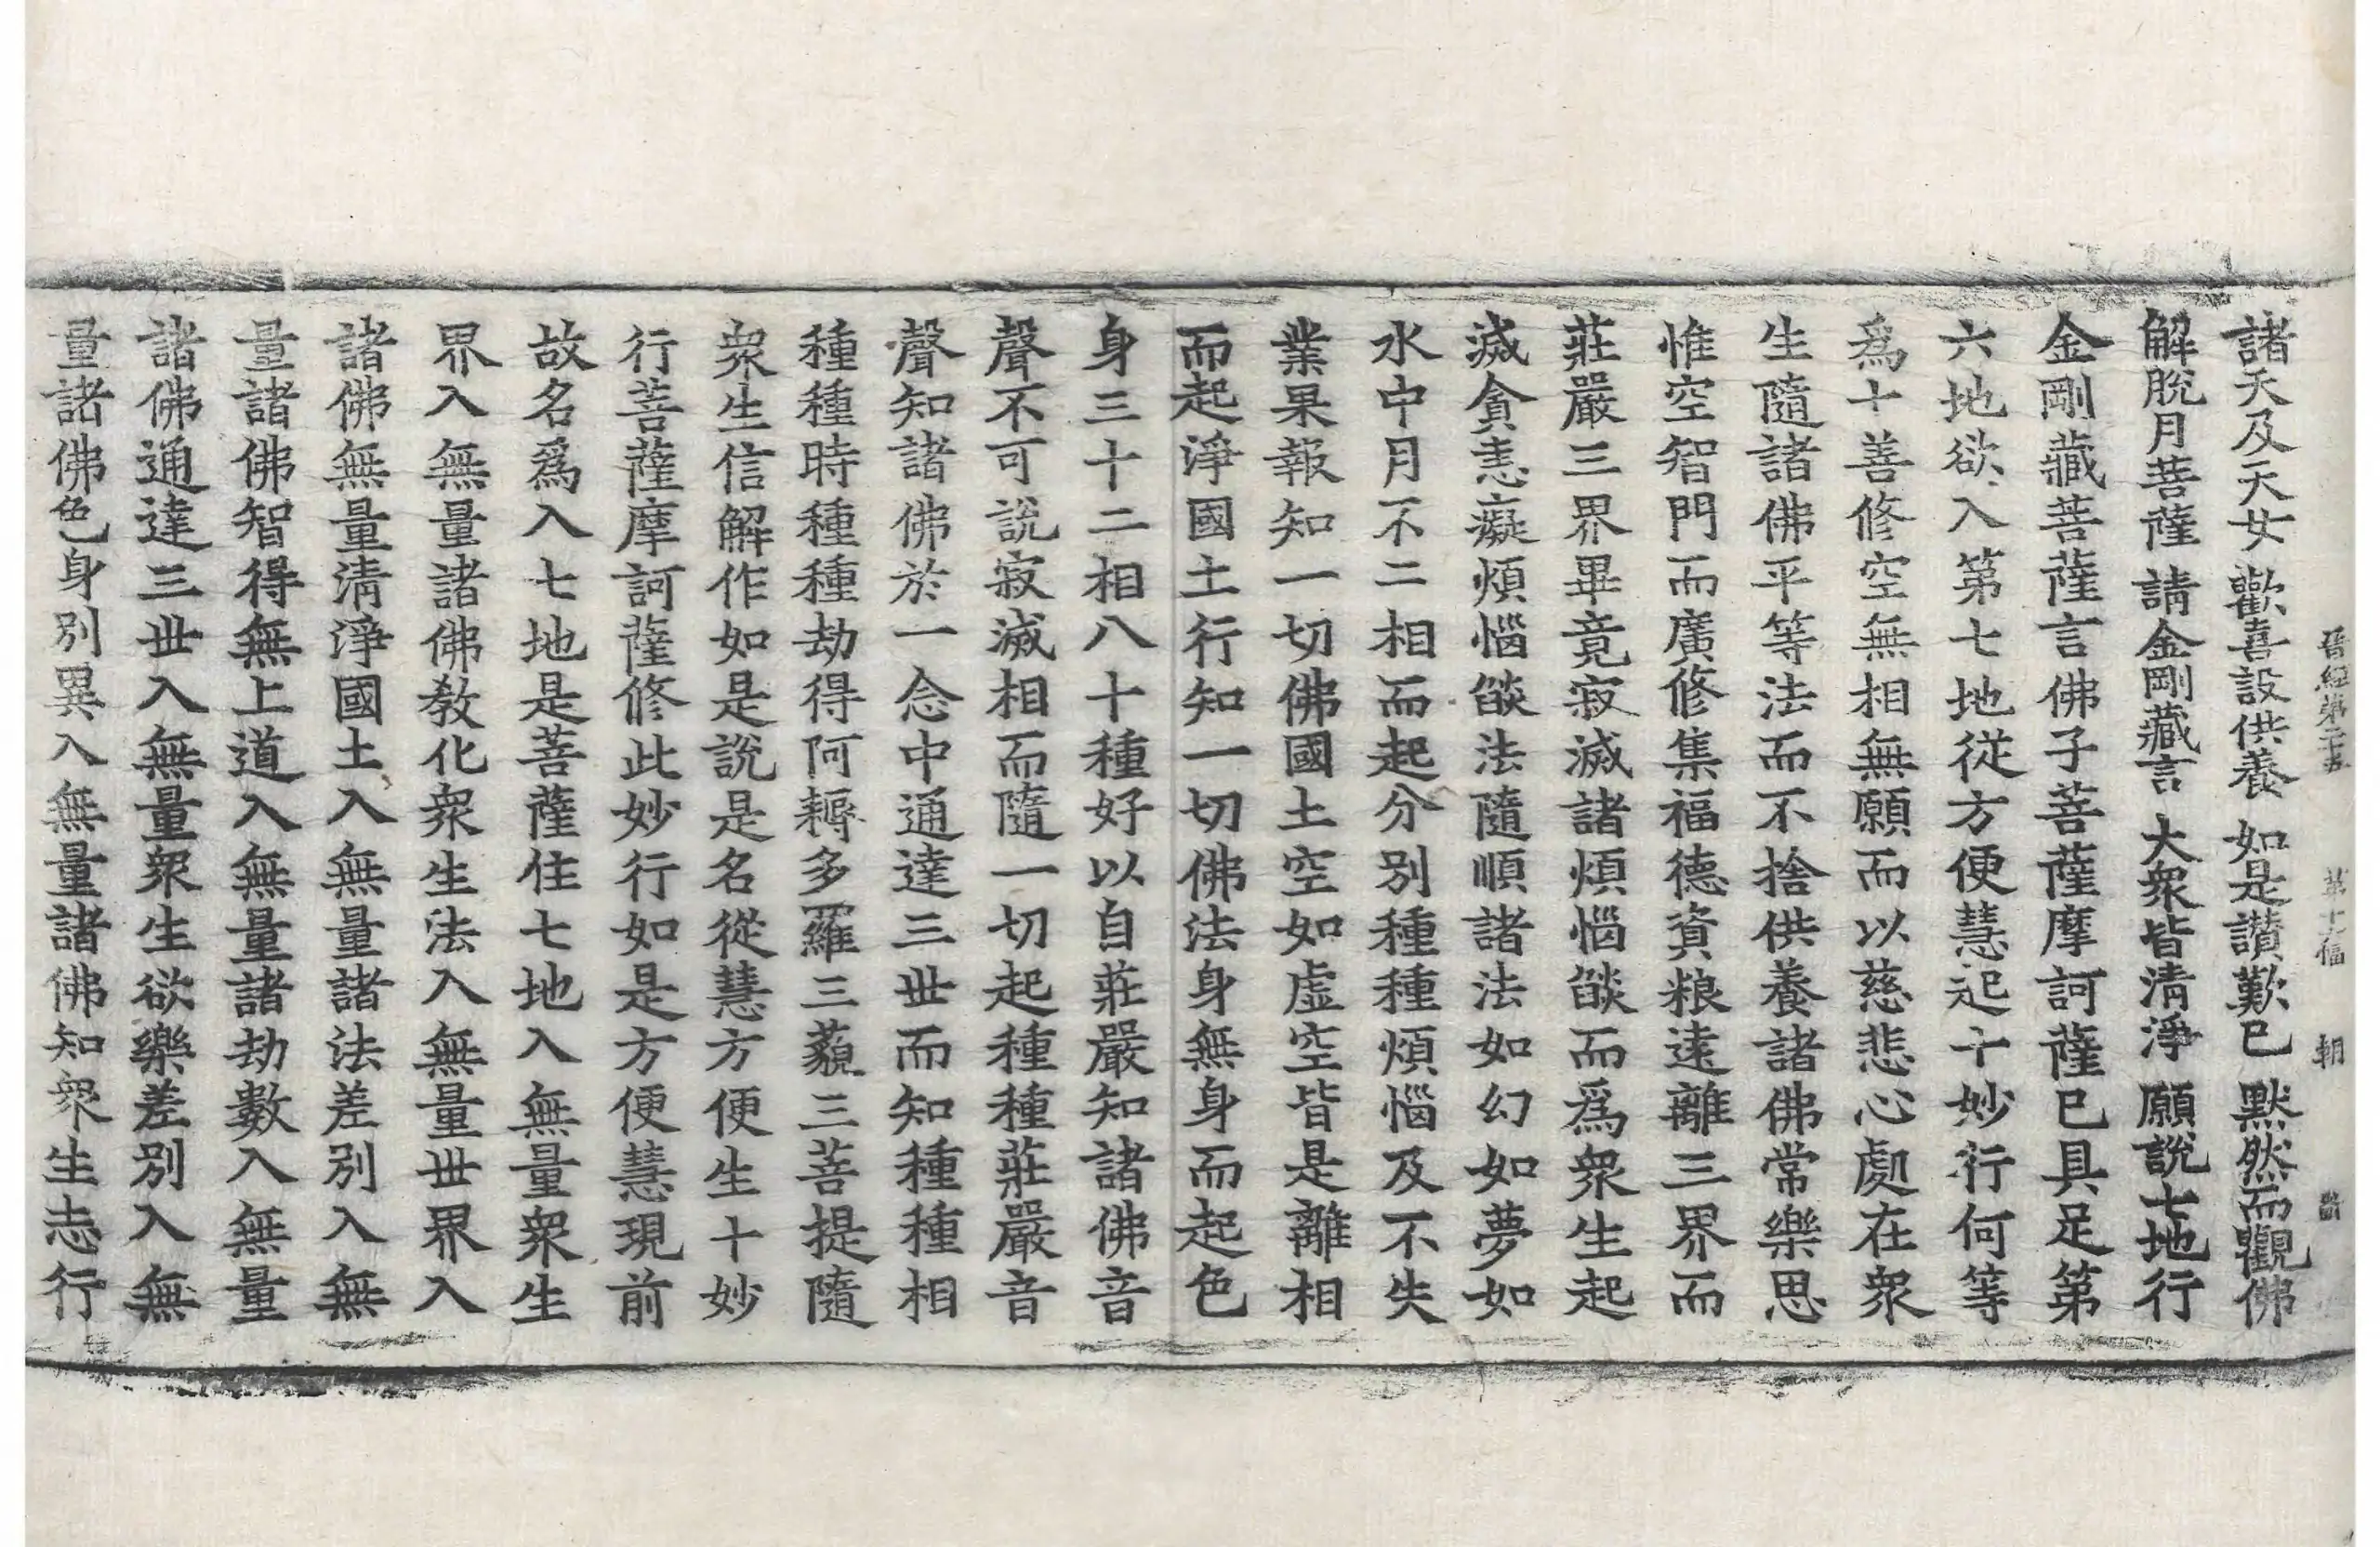 晉經第二十五 第十九幅 朝
諸天及天女 歡喜設供養 如是讃歎已 默然而觀佛
解脫月菩薩 請金剛藏言 大衆皆清淨 願說七地行
金剛藏菩薩言佛子菩薩摩訶薩已具足第
六地欲入第七地從方便慧起十妙行何等
爲十善修空無相無願而以慈悲心處在衆
生隨諸佛平等法而不捨供養諸佛常樂思
惟空智門而廣修集福德資粮遠離三界而
莊嚴三界畢竟寂滅諸煩惱燄而爲衆生起
滅貪恚癡煩惱燄法隨順諸法如幻如夢如
水中月不二相而起分別種種煩惱及不失
業果報知一切佛國土空如虛空皆是離相
而起淨國土行知一切佛法身無身而起色
身三十二相八十種好以自莊嚴知諸佛音
聲不可說寂滅相而隨一切起種種莊嚴音
聲知諸佛於一念中通達三世而知種種相
種種時種種劫得阿耨多羅三藐三菩提隨
衆生信解作如是說是名從慧方便生十妙
行菩薩摩訶薩修此妙行如是方便慧現前
故名爲入七地是菩薩住七地入無量衆生
界入無量諸佛教化衆生法入無量世界入
諸佛無量清淨國土入無量諸法差別入無
量諸佛智得無上道入無量諸劫數入無量
諸佛通達三世入無量衆生欲樂差別入無
量諸佛色身別異入無量諸佛知衆生志行